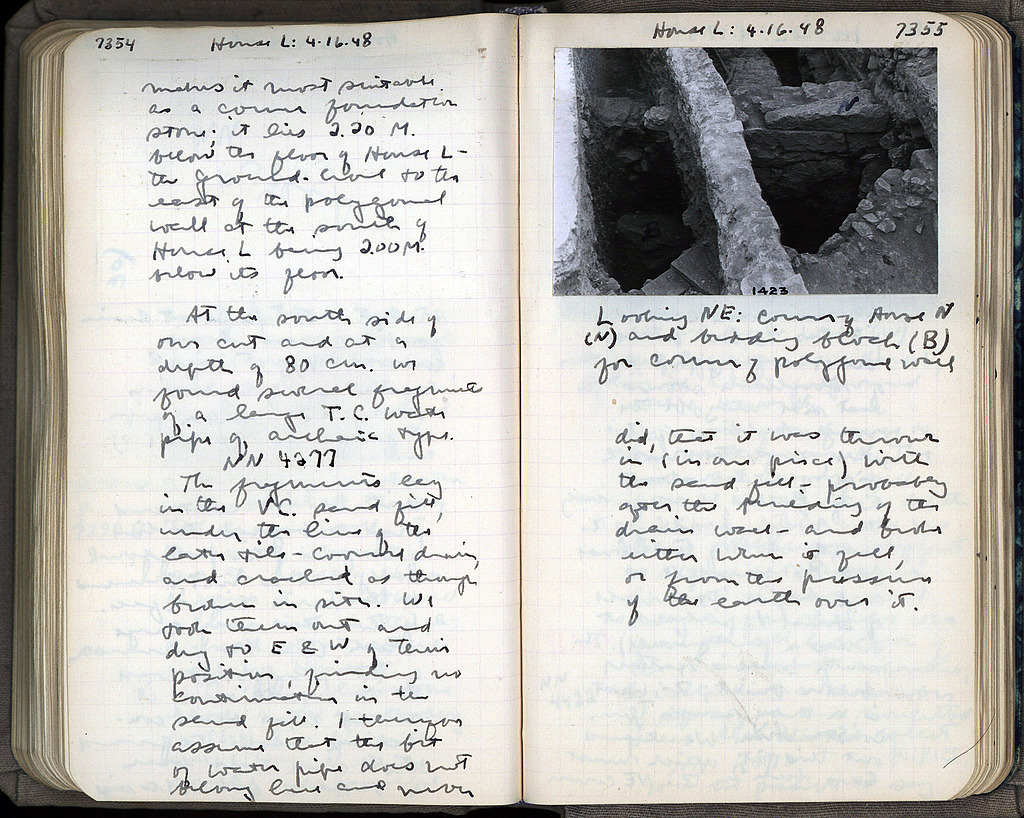 7354
House L: 4.16.48
makes it most suitable
as a corner foundation
stone; it lies 2.20 M.
below the floor of House L -
the ground-level to the
east of the polygonal
wall at the south of
House L being 2.00 M.
below its floor.
At the south side of
our cut and at a
depth of 80 cm. we
found several fragments
of a large T.C. water
pipe of archaic type.
NN 4277
The fragments lay
in the VC. sand fill,
under the line of the
later tile-covered drain,
and cracked as though
broken in situ. We
took them out and
dug to E & W of their
position, finding no
continuation in the
sand fill. I therefore
assume that the bit
of water pipe does not
belong here and never
House L: 4.16.48
7355
1423
Looking NE: corner of House N
(N) and bedding block (B)
for corner of polygonal wall
did, that it was thrown
in (in one piece) with
the sand fill - probably
after the building of the
drain wall - and broke
either when it fell,
or from the pressure
of the earth over it.